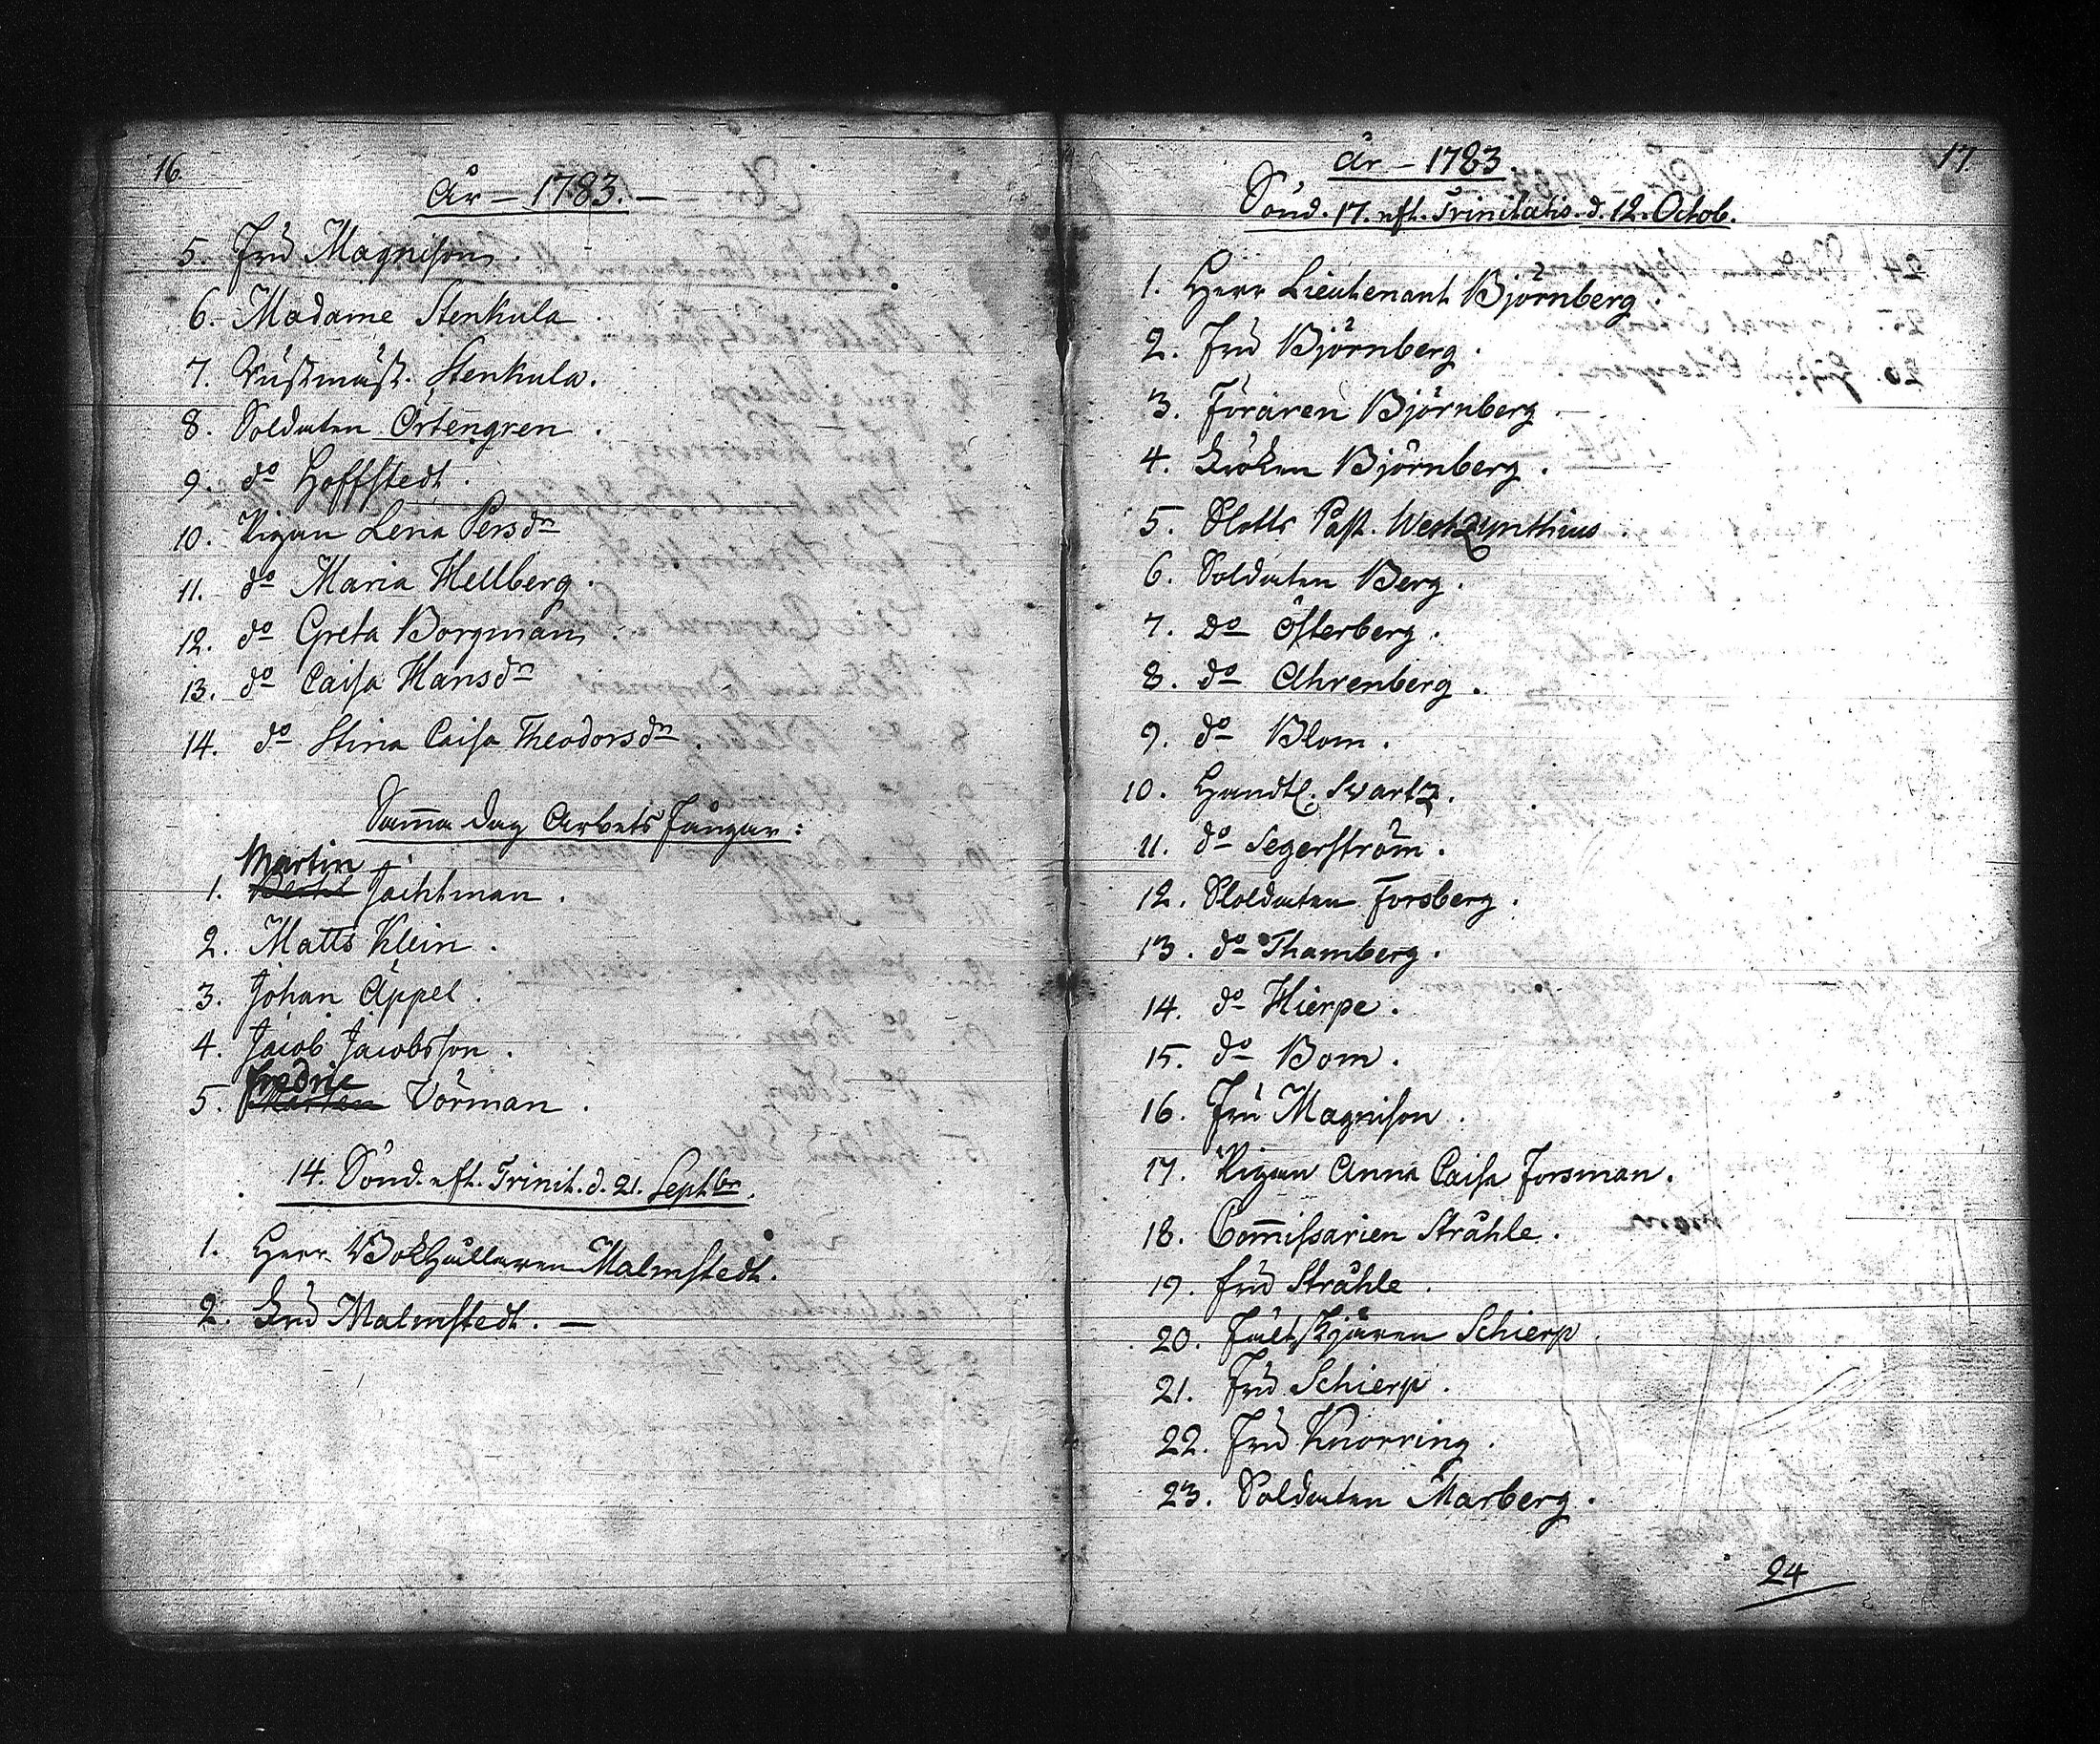 16.
År – 1783. –
5. Fru Magnison.
6. Madame Stenkula.
7. Rustmäst. Stenkula.
8. Soldaten Örtengren.
9. do Hoffstedt.
10. Pigan Lena Persdr
11. do Maria Hellberg.
12. do Greta Borgman.
13. do Caisa Hansdr
14. do Stina Caisa Theodorsdr.
Samma dag Arbets Fångar:
Martin
1. Jachtman.
2. Matts Klein.
3. Johan Appel.
4. Jacob Jacobsson.
Fredric
5. Mårten Vörman.
14. Sönd. eft. Trinit. d. 21. Septbr.
1. Herr Bokhållaren Malmstedt.
2. Fru Malmstedt. –
17.
År – 1783
Sönd. 17. eft. Trinitatis. d. 12. Octob.
1. Herr Lieutenant Björnberg.
2. Fru Björnberg.
3. Föraren Björnberg.
4. Fröken Björnberg.
5. Slotts Past. Westzynthius.
6. Soldaten Berg.
7. Do Österberg.
8. do Ahrenberg.
9. do Blom.
10. Handtl. Swartz.
11. do Segerström.
12. Soldaten Forsberg.
13. do Thamberg.
14. do Hierpe.
15. do Bom.
16. Fru Magnison.
17. Pigan Anna Caisa Forsman.
18. Commissarien Stråhle.
19. Fru Stråhle.
20. Fältskjären Schierp.
21. Fru Schierp.
22. Fru Knorring.
23. Soldaten Marberg.
24